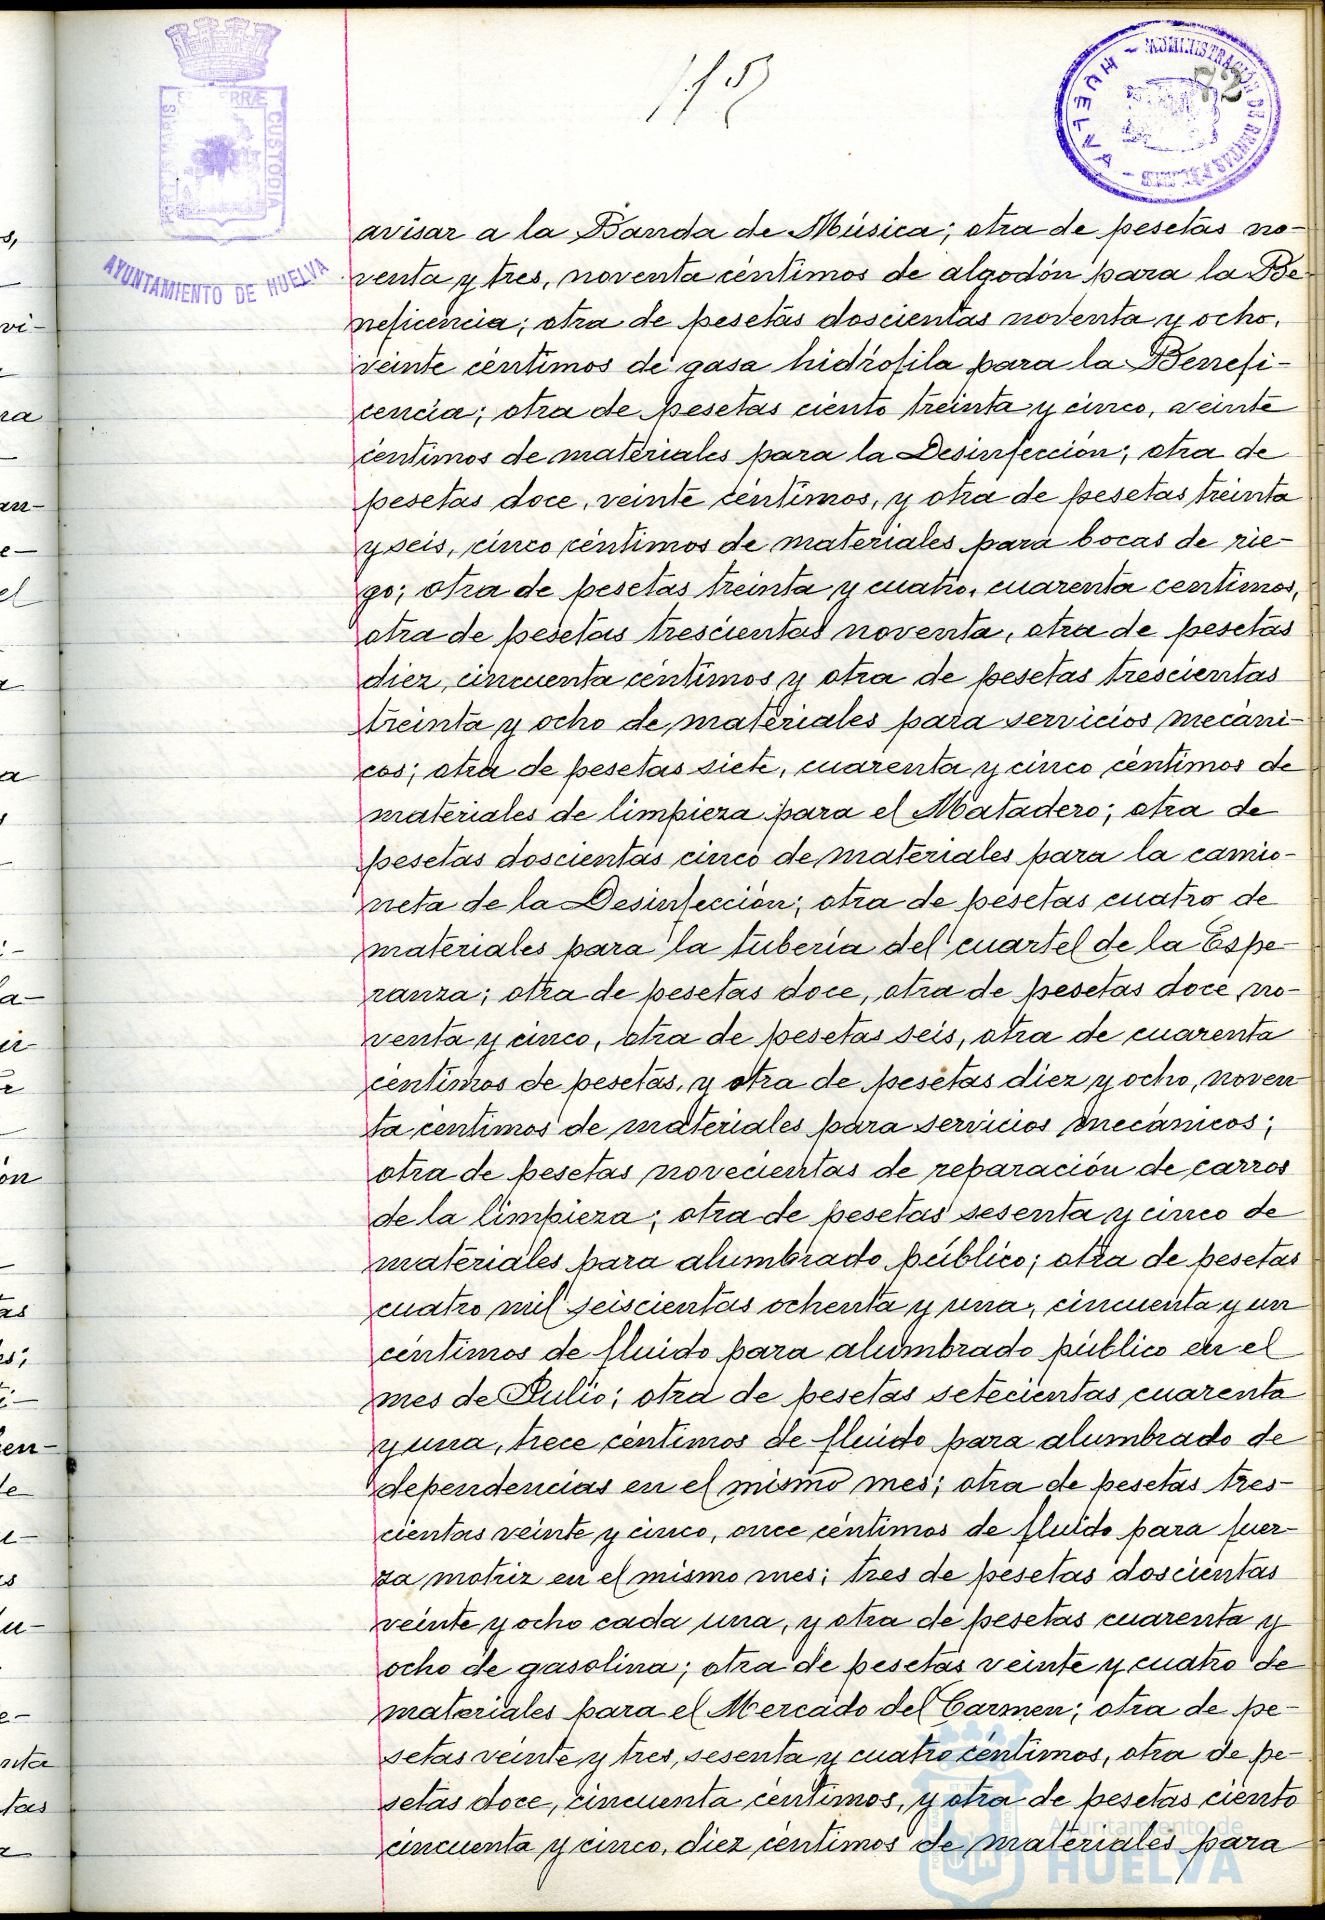 72
avisar a la Banda de Música; otra de pesetas no-
venta y tres, noventa céntimos de algodón para la Be-
neficencia; otra de pesetas doscientas noventa y ocho,
veinte céntimos de gasa hidrófila para la Benefi-
cencia; otra de pesetas ciento treinta y cinco, veinte
céntimos de materiales para la Desinfección; otra de
pesetas doce, veinte céntimos, y otra de pesetas treinta
y seis, cinco céntimos de materiales para bocas de rie-
go; otra de pesetas treinta y cuatro, cuarenta centimos,
otra de pesetas trescientas noventa, otra de pesetas
diez, cincuenta céntimos y otra de pesetas trescientas
treinta y ocho de materiales para servicios mecáni-
cos; otra de pesetas siete, cuarenta y cinco céntimos de
materiales de limpieza para el Matadero; otra de
pesetas doscientas cinco de materiales para la camio-
neta de la Desinfección; otra de pesetas cuatro de
materiales para la tubería del cuartel de la Espe-
ranza; otra de pesetas doce, otra de pesetas doce, no-
venta y cinco, otra de pesetas seis, otra de cuarenta
céntimos de pesetas, y otra de pesetas diez y ocho, noven-
ta céntimos de materiales para servicios mecánicos;
otra de pesetas novecientas de reparación de carros
de la limpieza; otra de pesetas sesenta y cinco de
materiales para alumbrado público; otra de pesetas
cuatro mil seiscientas ochenta y una, cincuenta y un
céntimos de fluido para alumbrado público en el
mes de Julio; otra de pesetas setecientas cuarenta
y una, trece céntimos de fluído para alumbrado de
dependencias en el mismo mes; otra de pesetas tres-
cientas veinte y cinco, once céntimos de fluído para fuer-
za motriz en el mismo mes; tres de pesetas doscientas
veinte y ocho cada una, y otra de pesetas cuarenta y
ocho de gasolina; otra de pesetas veinte y cuatro de
materiales para el Mercado del Carmen; otra de pe-
setas veinte y tres, sesenta y cuatro céntimos, otra de pe-
setas doce, cincuenta céntimos, y otra de pesetas ciento
cincuenta y cinco, diez céntimos de materiales para
AYUNTAMIENTO DE HUELVA
CUSTODIA
HUELVA
Ayuntamiento de
HUELVA